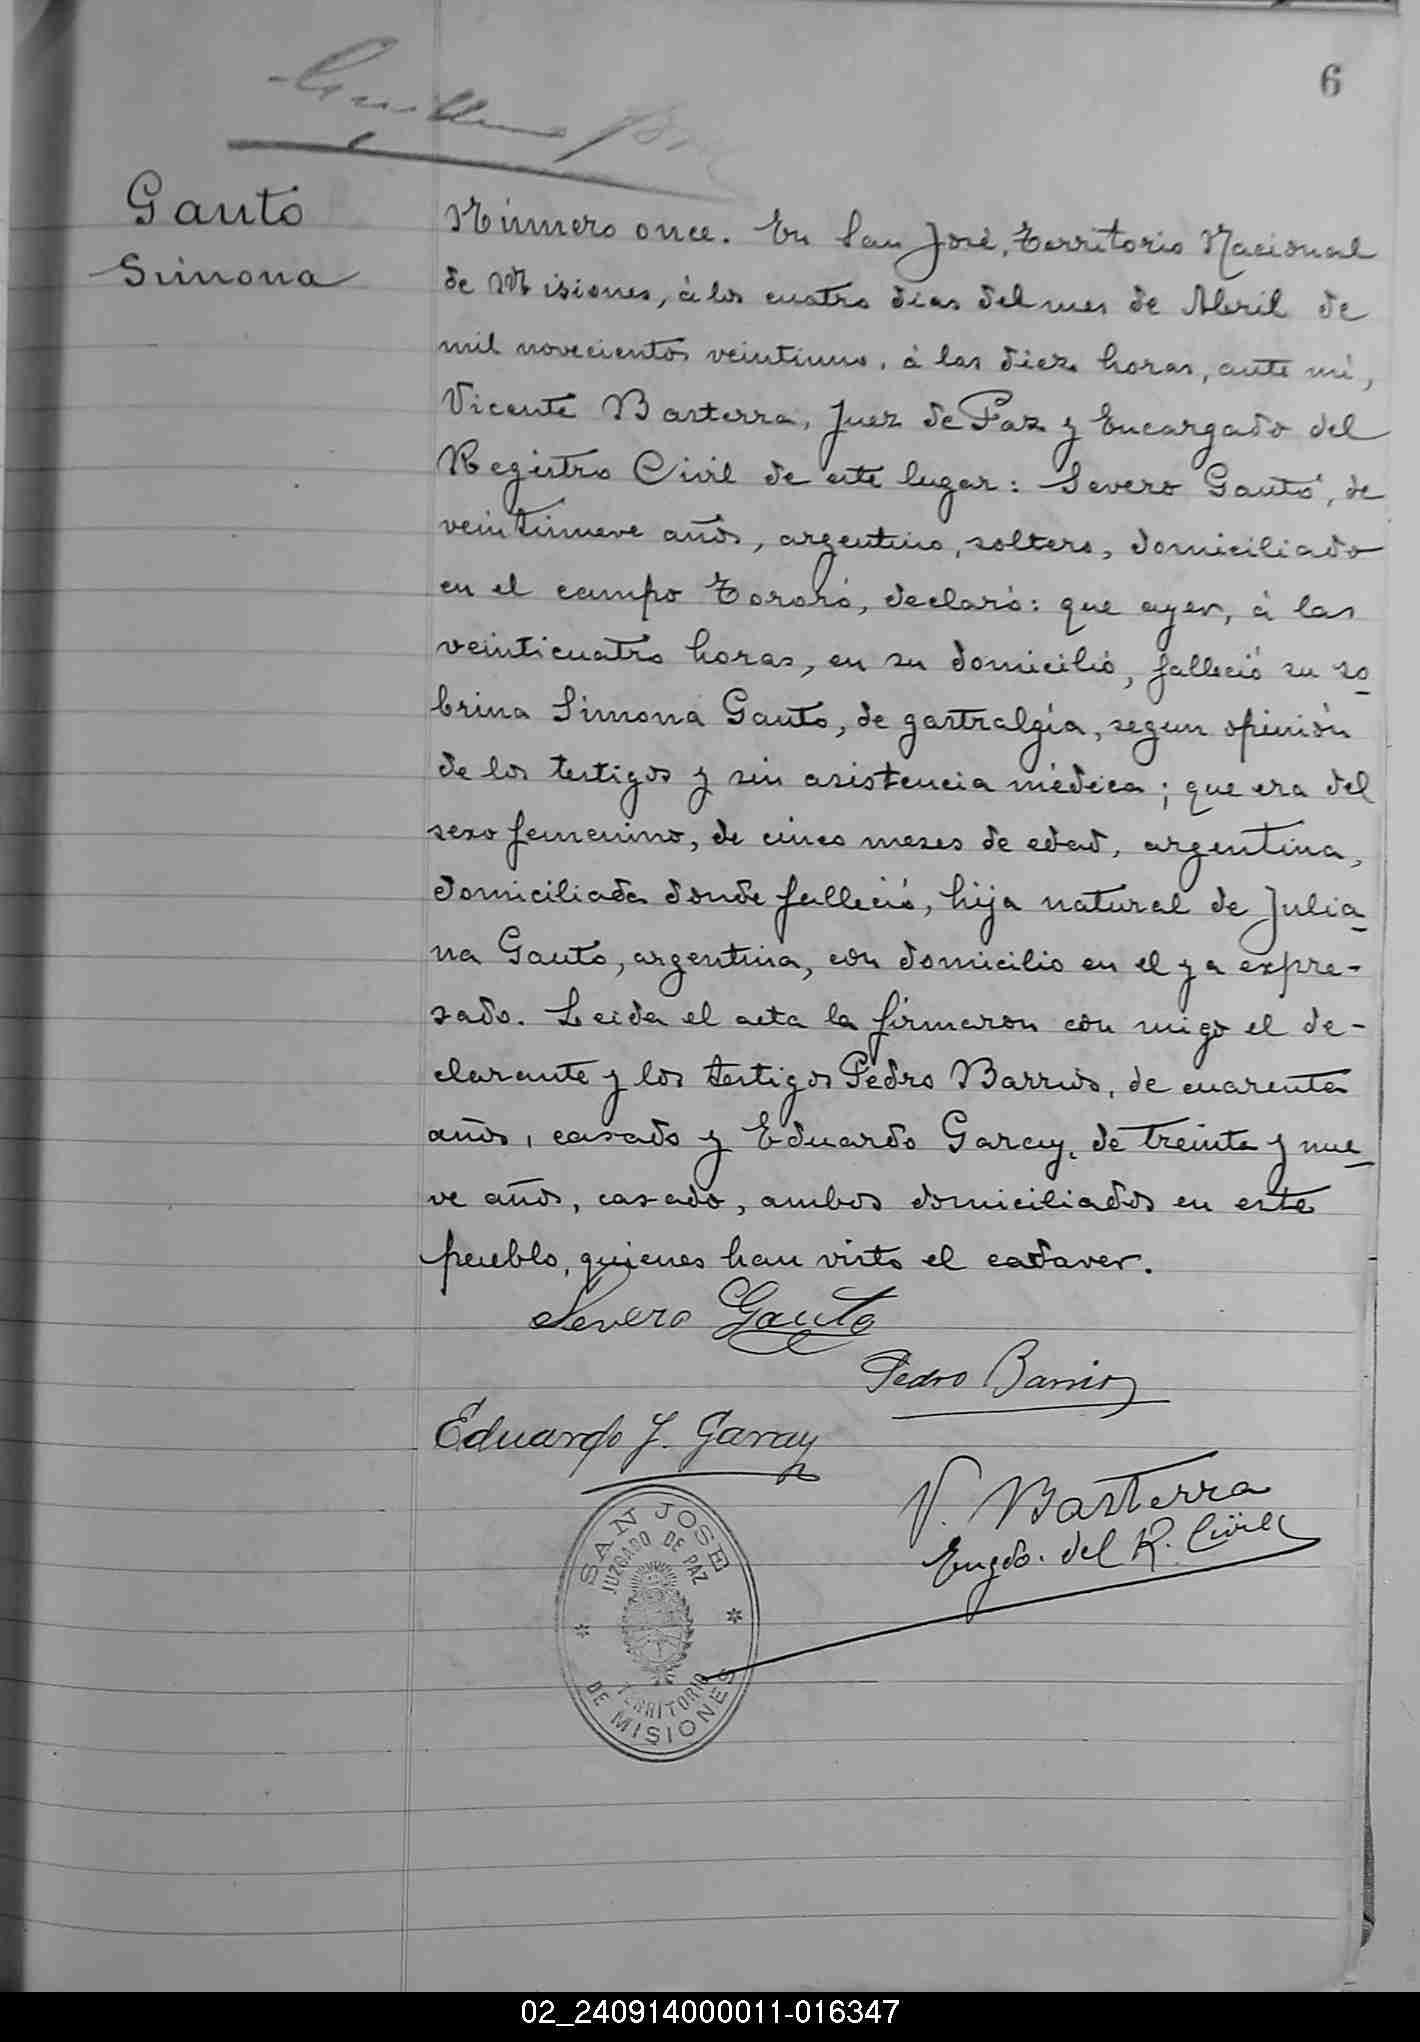 6
Gauto
Simona
Número once. En San José, Territorio Nacional
de Misiones, á los cuatro dias del mes de Abril de
mil novecientos veintiuno, á las diez horas, ante mi,
Vicente Basterra, Juez de Paz y Encargado del
Registro Civil de este lugar: Severo Gauto, de
veintinueve años, argentino, soltero, domiciliado
en el campo Tororó, declaró: que ayer, á las
veinticuatro horas, en su domicilio, falleció su so_
brina Simona Gauto, de gastralgia, segun opinión
de los testigos y sin asistencia médica; que era del
sexo femenino, de cinco meses de edad, argentina,
domiciliada donde falleció, hija natural de Julia_
na Gauto, argentina, con domicilio en el ya expre-
sado. Leida el acta la firmaron con migo el de-
clarante y los testigos Pedro Barrios, de cuarenta
años, casado y Eduardo Garay, de treinta y nue_
ve años, casado, ambos domiciliados en este
pueblo, quienes han visto el cadaver.
Severo Gauto
Pedro Barrios
Eduardo J. Garay
V. Basterra
Engdo. del R. Civil
SAN JOSE
JUZGADO DE PAZ
TERRITORIO
DE MISIONES
02_240914000011-016347